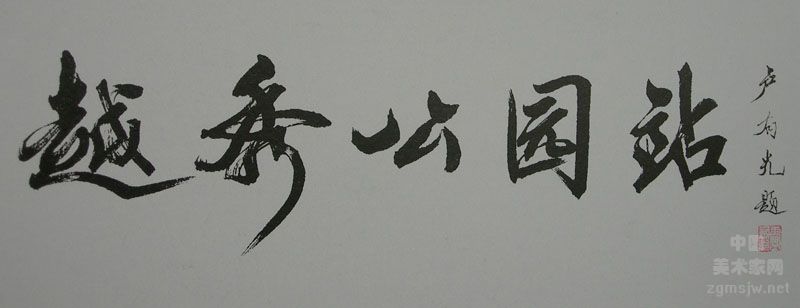 越秀公园站
卢有光题
中国
美术家网
zgmsjw.net